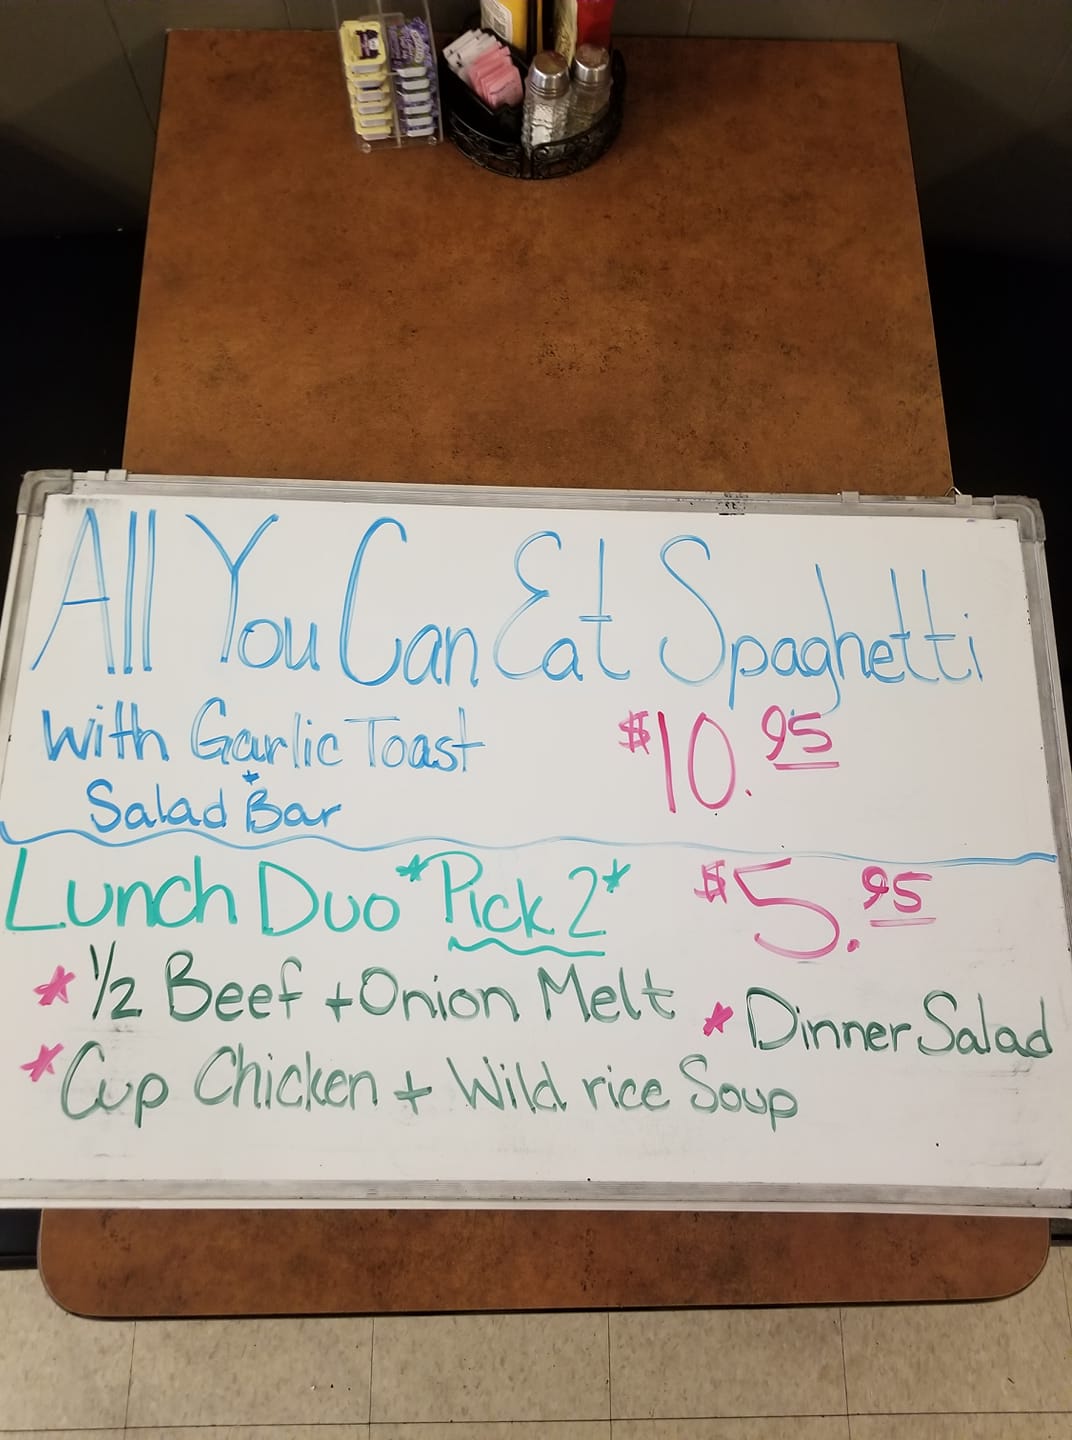 All You Can Eat Spaghetti
with Garlic Toast
$10.95
* Salad Bar
Lunch Duo *Pick 2*
$5.95
* 1/2 Beef + Onion Melt
* Dinner Salad
* Cup Chicken + Wild rice Soup